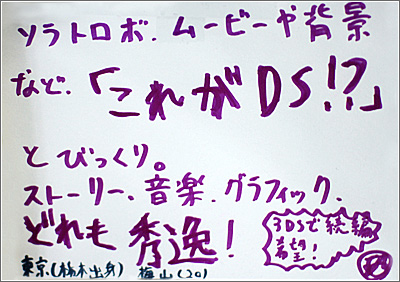 ソラトロボ.ムービーや背景
など.「これがDS!?」
とびっくり。
ストーリー、音楽.グラフィック、
どれも秀逸!
3DSで続編
希望!
東京(栃木出身) 梅山(20)